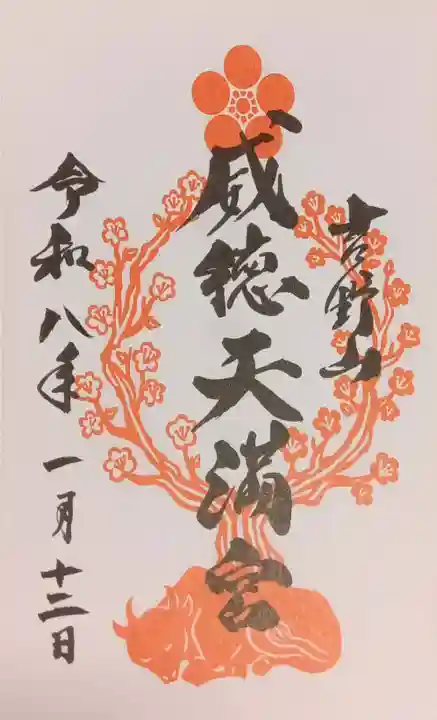 吉野山
威徳天満宮
令和八年 一月十二日